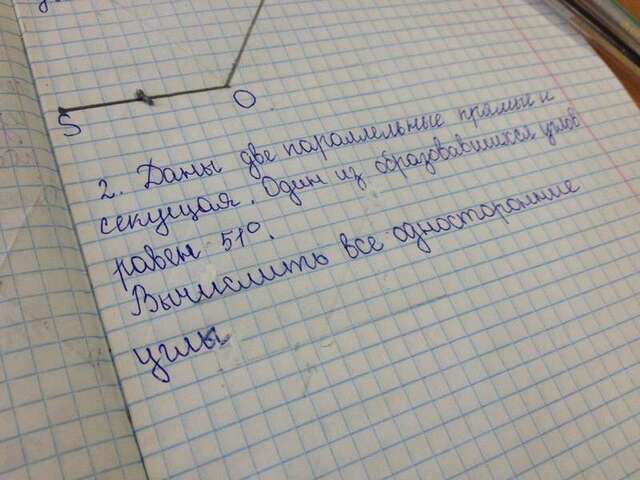 S
O
2. Даны две параллельные прямые и
секущая. Один из образовавшихся углов
равен 51°.
Вычислить все односторонние
углы